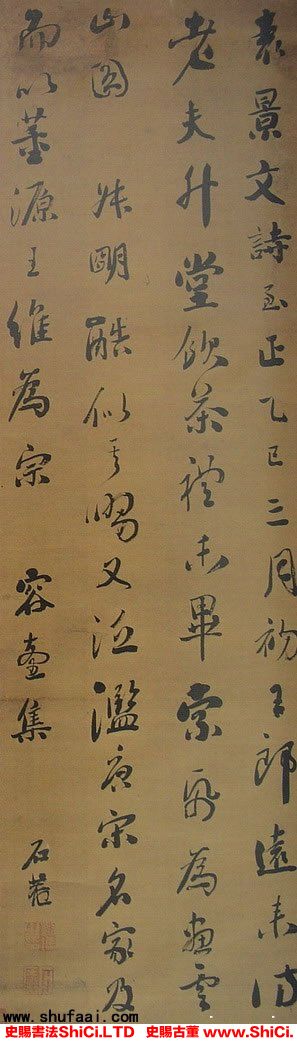 袁景文詩至正乙巳三月初王郎遠來訪
老夫升堂飲茶禮未畢索紙為畫雲
山圖 叔明酷似其甥又泛濫唐宋名家及
而以董源王維為宗 容臺集
石菴
www.shufaai.com
史賜書法ShiCi.LTD 史賜古董 www.ShiCi.com